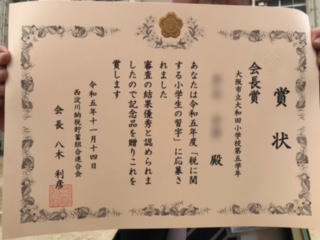 賞状
会長賞
大阪市立大和田小学校第五学年
殿
あなたは令和五年度「税に関
する小学生の習字」に応募さ
れました
審査の結果優秀と認められま
したので記念品を贈りこれを
賞します
令和五年十一月十四日
西淀川納税貯蓄組合連合会
会長 八木 利彦